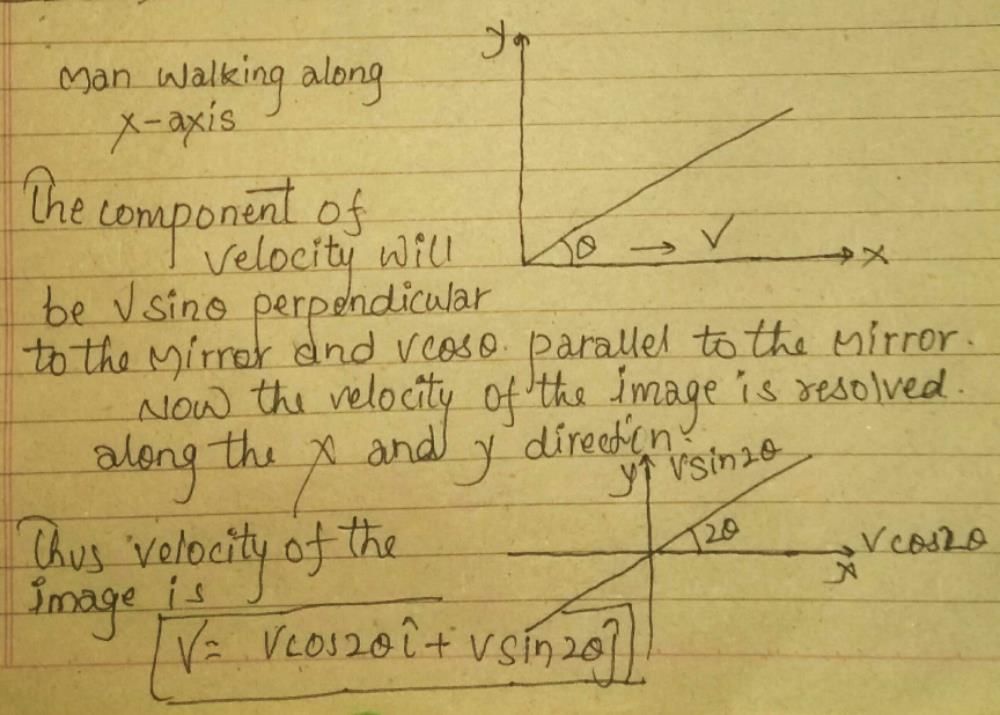 y
Man walking along
x-axis
The component of
velocity will
θ → V
x
be Vsinθ perpendicular
to the Mirror and vcosθ. parallel to the Mirror.
Now the velocity of the image is resolved.
along the x and y direction.
y Vsin2θ
Thus velocity of the
2θ
Vcos2θ
x
image is
V= Vcos2θ î + Vsin2θ ĵ